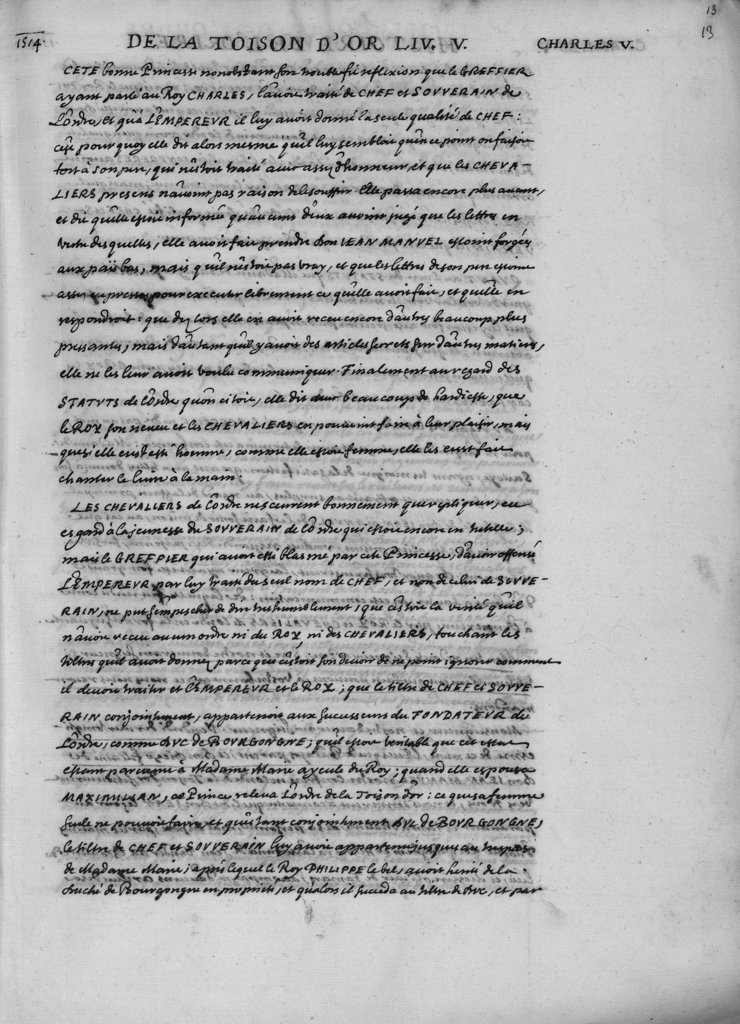 13
13
1514. DE LA TOISON D'OR LIV. V. CHARLES V.
CETE bonne Princesse nonobstant son trouble fit reflexion que le GREFFIER
ayant parlé au Roy CHARLES, l'avoit traité de CHEF et SOUVERAIN de
l'Ordre, et qu'a L'EMPEREUR il luy avoit donné la seule qualité de CHEF:
c'est pourquoy elle dit alors mesme qu'il luy sembloit qu'en ce point on faisoit
tort à son pere, qui n'estoit traité avec assez d'honneur, et que les CHEVA-
LIERS presens n'avoient pas raison de le souffrir. Elle passa encore plus avant,
et dit qu'elle estoit informée qu'aucuns d'eux avoient jugé que les lettres en
vertu desquelles, elle avoit fait prendre Don JEAN MANUEL estoient forgées
aux païs bas, mais qu'il n'estoit pas vray, et que les lettres de son pere estoient
assez expresses pour executer librement ce qu'elle avoit fait, et qu'elle en
respondroit: que dez lors elle en avoit receu encore d'autres beaucoup plus
pressantes, mais d'autant qu'il y avoit des articles secrets sur d'autres matieres,
elle ne les leur avoit voulu communiquer. Finalement au regard des
STATUTS de l'Ordre qu'on citoit, elle dit avec beaucoup de hardiesse, que
le ROY son neveu et les CHEVALIERS en pouvoient faire à leur plaisir, mais
que si elle eust esté homme, comme elle estoit femme, elle les eust fait
chanter le livre à la main;
LES CHEVALIERS de l'Ordre ne sceurent bonnement que repliquer, eu
esgard à la jeunesse du SOUVERAIN de l'Ordre qui estoit encore en tutelle;
mais le GREFFIER qui avoit esté blasmé par cete Princesse, d'avoir offensé
L'EMPEREUR par luy traité du seul nom de CHEF, et non de celui de SOUVE-
RAIN, ne put s'empescher de dire tres humblement, que c'estoit la verité qu'il
n'avoit receu aucun ordre ni du ROY, ni des CHEVALIERS, touchant les
tiltres qu'il avoit donnez, parce que c'estoit son devoir de ne point ignorer comment
il devoit traiter et l'EMPEREUR et le ROY; que le tiltre de CHEF et SOUVE-
RAIN conjointement, appartenoit aux Successeurs du FONDATEUR de
l'Ordre, comme DUC de BOURGONGNE; qu'il estoit veritable que cet estat
estant parvenu à Madame Marie ayeule du Roy; quand elle espousa
MAXIMILIAN, ce Prince releva l'Ordre de la Toison d'or: ce que sa femme
seule ne pouvoit faire, et qu'estant conjointement DUC de BOURGONGNE,
le tiltre de CHEF et SOUVERAIN luy avoit appartenu jusques au trespas
de Madame Marie; aprés lequel le Roy PHILIPPE le bel, avoit herité de la
Duché de Bourgongne en proprieté, et qu'alors il succeda au tiltre de DUC, et par